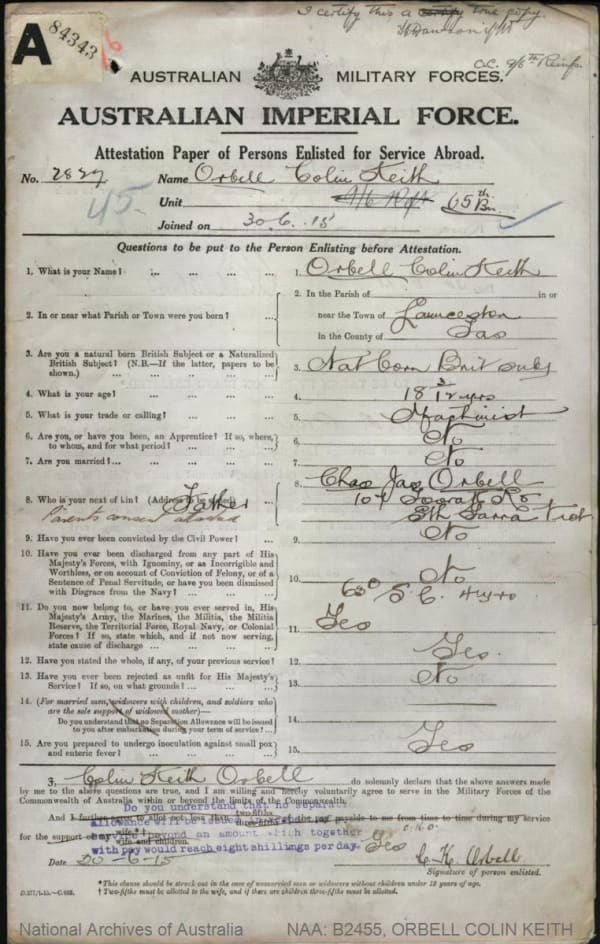 I certify this a certify true copy.
O.C. 9/6th Reinfs.
A 84343
AUSTRALIAN MILITARY FORCES.
AUSTRALIAN IMPERIAL FORCE.
Attestation Paper of Persons Enlisted for Service Abroad.
No. 2829 Name Orbell Colin Keith
45
Unit 65th Bn.
Joined on 30.6.15
Questions to be put to the Person Enlisting before Attestation.
1. What is your Name? ... ... ... ... 1. Orbell Colin Keith
2. In or near what Parish or Town were you born? ... 2. In the Parish of in or
near the Town of Launceston
in the County of Tas
3. Are you a natural born British Subject or a Naturalized
British Subject? (N.B.—If the latter, papers to be
shown.) ... ... ... ... 3. Nat born Brit subj
4. What is your age? ... ... ... ... 4. 18 3/12 yrs
5. What is your trade or calling? ... ... ... 5. Machinist
6. Are you, or have you been, an Apprentice? If so, where,
to whom, and for what period? ... ... ... 6. No
7. Are you married? ... ... ... ... 7. No
8. Who is your next of kin? (Address to be stated) Father 8. Chas Jas Orbell
Parents consent attached
104 Rd
Sth Yarra Vict
9. Have you ever been convicted by the Civil Power? ... 9. No
10. Have you ever been discharged from any part of His
Majesty's Forces, with Ignominy, or as Incorrigible and
Worthless, or on account of Conviction of Felony, or of a
Sentence of Penal Servitude, or have you been dismissed
with Disgrace from the Navy? ... ... ... 10. No
11. Do you now belong to, or have you ever served in, His
Majesty's Army, the Marines, the Militia, the Militia
Reserve, the Territorial Force, Royal Navy, or Colonial
Forces? If so, state which, and if not now serving,
state cause of discharge ... ... ... 11. Yes
S.C. 4 yrs
12. Have you stated the whole, if any, of your previous service? 12. Yes.
13. Have you ever been rejected as unfit for His Majesty's
Service? If so, on what grounds? ... ... ... 13. No
14. (For married men, widowers with children, and soldiers who
are the sole support of widowed mother)—
Do you understand that no Separation Allowance will be issued
to you after embarkation during your term of service? ... 14.
15. Are you prepared to undergo inoculation against small pox
and enteric fever? ... ... ... ... 15. Yes
I, Colin Keith Orbell do solemnly declare that the above answers made
by me to the above questions are true, and I am willing and hereby voluntarily agree to serve in the Military Forces of the
Commonwealth of Australia within or beyond the limits of the Commonwealth.
And I further agree to allot not less than two-fifths of the pay payable to me from time to time during my service
for the support of my wife*†
wife and children.
Do you understand that no separation
allowance will be issued
service beyond an amount which together
with pay would reach eight shillings per day. Yes
Date 30-6-15 C. K. Orbell
Signature of person enlisted.
*This clause should be struck out in the case of unmarried men or widowers without children under 18 years of age.
† Two-fifths must be allotted to the wife, and if there are children three-fifths must be allotted.
National Archives of Australia NAA: B2455, ORBELL COLIN KEITH